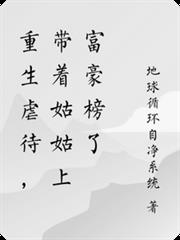 重生虐待，
带着姑姑上
富豪榜了
地球循环自净系统 著